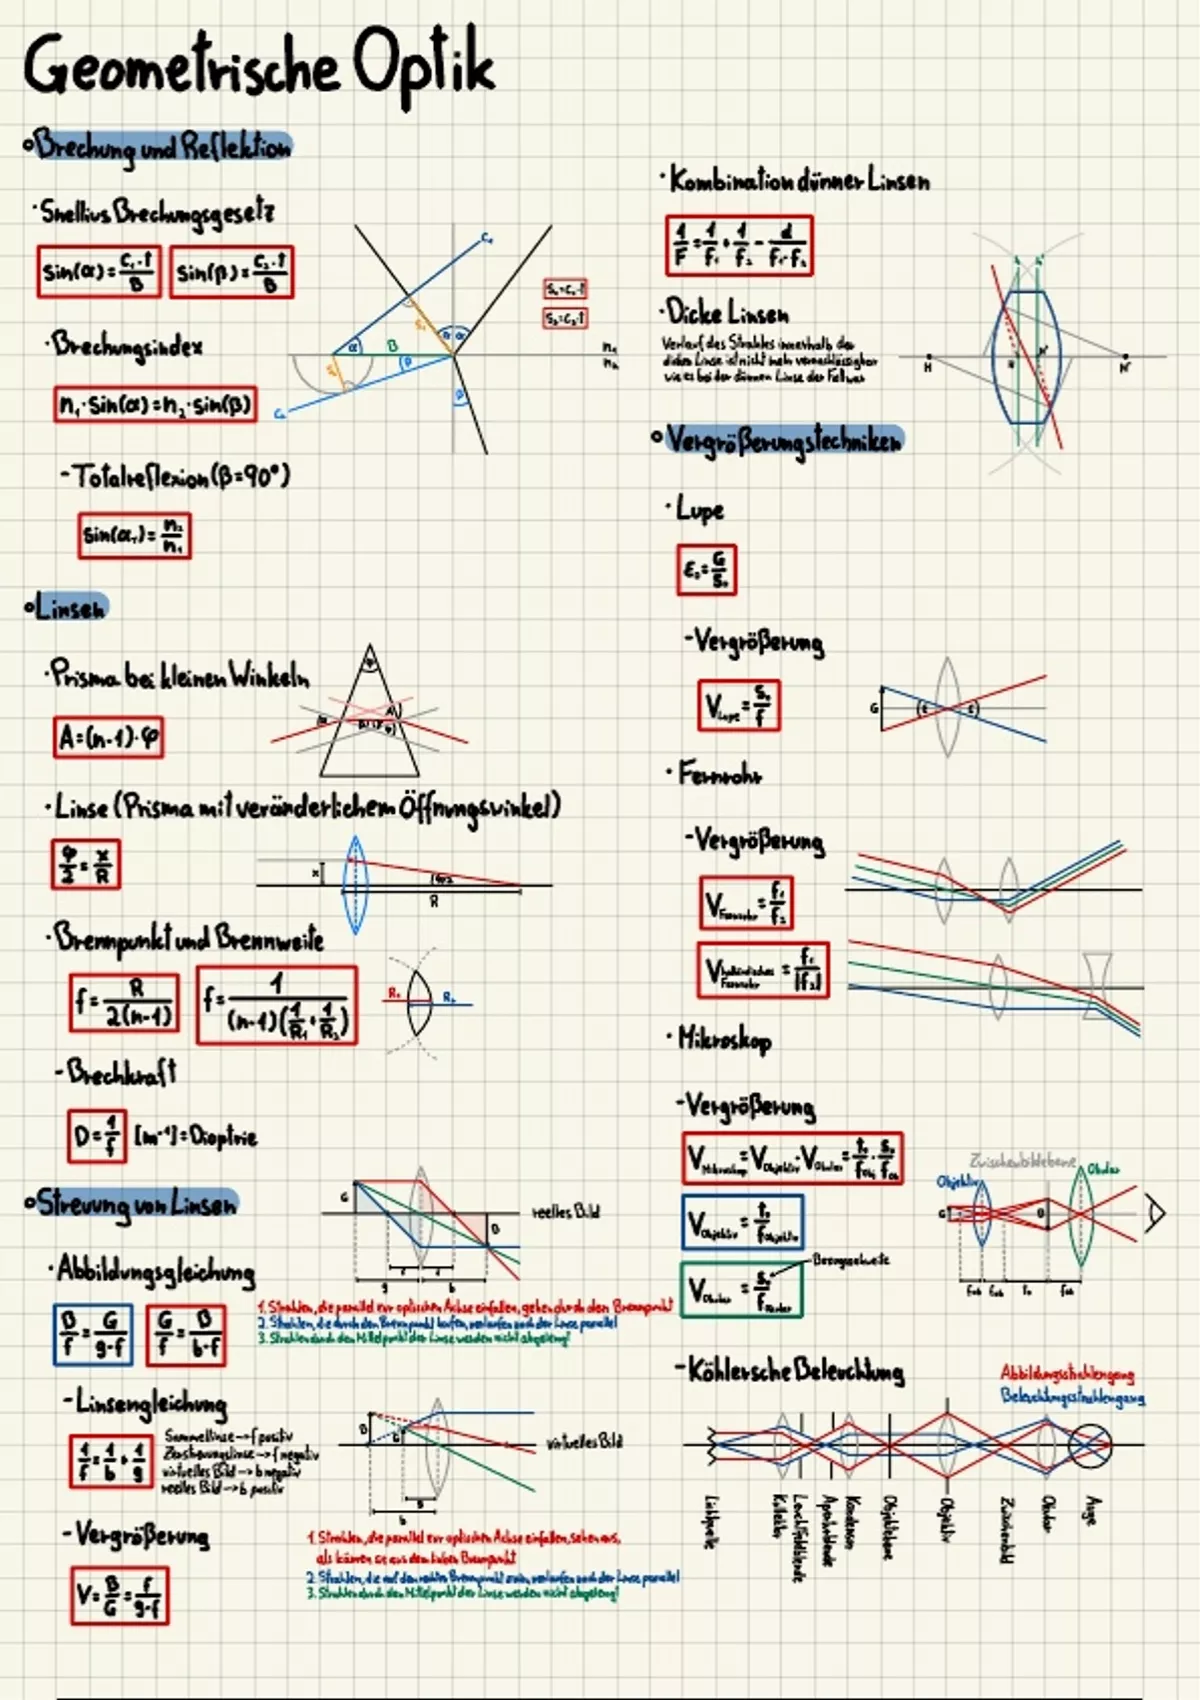 Geometrische Optik
Brechung und Reflektion
Snellius Brechungsgesetz
sin(α) = c₁·t/B
sin(β) = c₂·t/B
C₁
s₁
α
α
α
B
β
β
C₂
s₁=c₁·t
s₂=c₂·t
n₁
n₂
Brechungsindex
n₁·sin(α)=n₂·sin(β)
-Totalreflexion (β=90°)
sin(α_T) = n₂/n₁
Linsen
Prisma bei kleinen Winkeln
A=(n-1)·φ
φ
Linse (Prisma mit veränderlichem Öffnungswinkel)
φ/2 = x/R
x
R
Brennpunkt und Brennweite
f = R/2(n-1)
f = 1/(n-1)(1/R₁+1/R₂)
R₁
R₂
-Brechkraft
D = 1/f [m⁻¹]=Dioptrie
Streuung von Linsen
G
B
f
f
g
b
reelles Bild
Abbildungsgleichung
B/f = G/g-f
G/f = B/b-f
1. Strahlen, die parallel zur optischen Achse einfallen, gehen durch den Brennpunkt
2. Strahlen, die durch den Brennpunkt laufen, verlaufen nach der Linse parallel
3. Strahlen durch den Mittelpunkt der Linse werden nicht abgelengt
-Linsengleichung
1/f = 1/b + 1/g
Sammellinse → f positiv
Zerstreuungslinse → f negativ
virtuelles Bild → b negativ
reelles Bild → b positiv
B
G
g
b
virtuelles Bild
-Vergrößerung
V = B/G = f/g-f
1. Strahlen, die parallel zur optischen Achse einfallen, sehen aus,
als kämen sie aus dem linken Brennpunkt
2. Strahlen, die auf den rechten Brennpunkt verlaufen nach der Linse parallel
3. Strahlen durch den Mittelpunkt der Linse werden nicht abgelengt
Kombination dünner Linsen
1/F = 1/f₁ + 1/f₂ - d/f₁·f₂
Dicke Linsen
Verlauf des Strahles innerhalb der
dicken Linse ist nicht mehr vernachlässigbar
wie es bei der dünnen Linse der Fall war
H
H'
Vergrößerungstechniken
Lupe
ε₀ = G/s₀
-Vergrößerung
V_Lupe = s₀/f
G
ε
ε
Fernrohr
-Vergrößerung
V_Fernrohr = f₁/f₂
V_holländisches Fernrohr = f₁/|f₂|
Mikroskop
-Vergrößerung
V_Mikroskop = V_Objektiv · V_Okular = t₀/f_Obj · s₀/f_Ok
V_Objektiv = t₀/f_Objektiv
Bezugssehweite
V_Okular = s₀/f_Okular
Zwischenbildebene
Objektiv
Okular
G
B
f_ob
f_ob
t₀
f_ok
-Köhlersche Beleuchtung
Abbildungsstrahlengang
Beleuchtungsstrahlengang
Lichtquelle
Kollektor
Leuchtfeldblende
Aperturblende
Kondensor
Objektebene
Objektiv
Zwischenbild
Okular
Auge